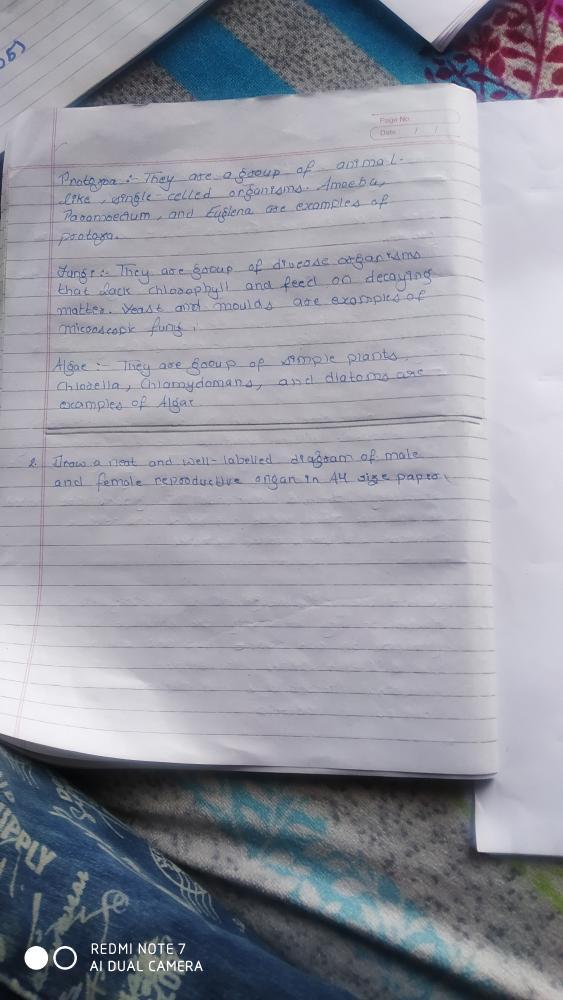 Page No.
Date / /
Protozoa :- They are a group of animal-
like, single-celled organisms. Amoeba,
Paramoecium, and Euglena are examples of
protozoa.
Fungi :- They are group of diverse organisms
that lack chlorophyll and feed on decaying
matter. Yeast and moulds are examples of
microscopic fungi.
Algae :- They are group of simple plants.
Chlorella, Chlamydomans, and diatoms are
examples of Algae
2. Draw a neat and well-labelled diagram of male
and female reproductive organ in A4 size paper.
SUPPLY
REDMI NOTE 7
AI DUAL CAMERA